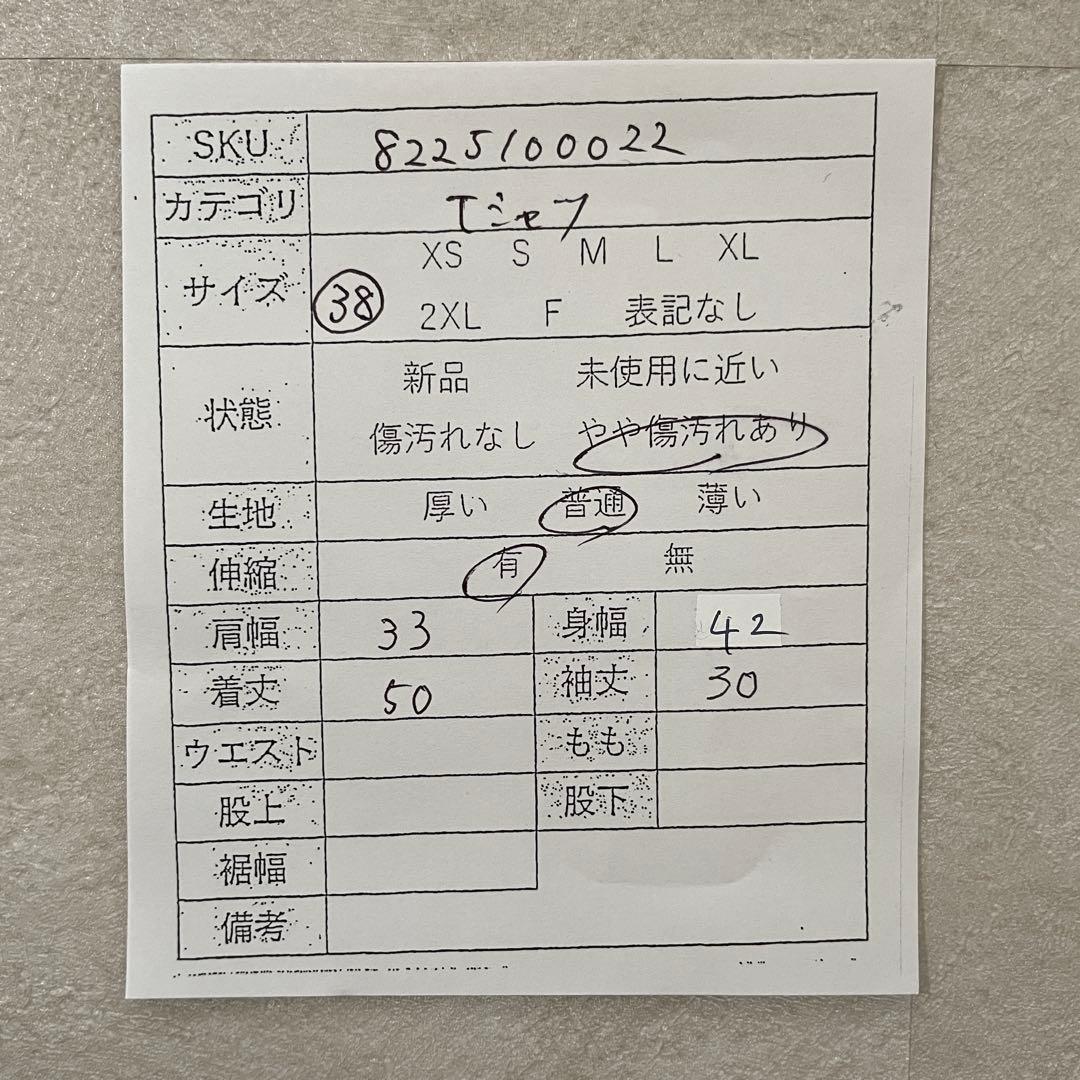 SKU 8225100022
カテゴリ Tシャツ
サイズ XS S M L XL
38 2XL F 表記なし
状態 新品 未使用に近い
傷汚れなし やや傷汚れあり
生地 厚い 普通 薄い
伸縮 有 無
肩幅 33 身幅 42
着丈 50 袖丈 30
ウエスト もも
股上 股下
裾幅
備考